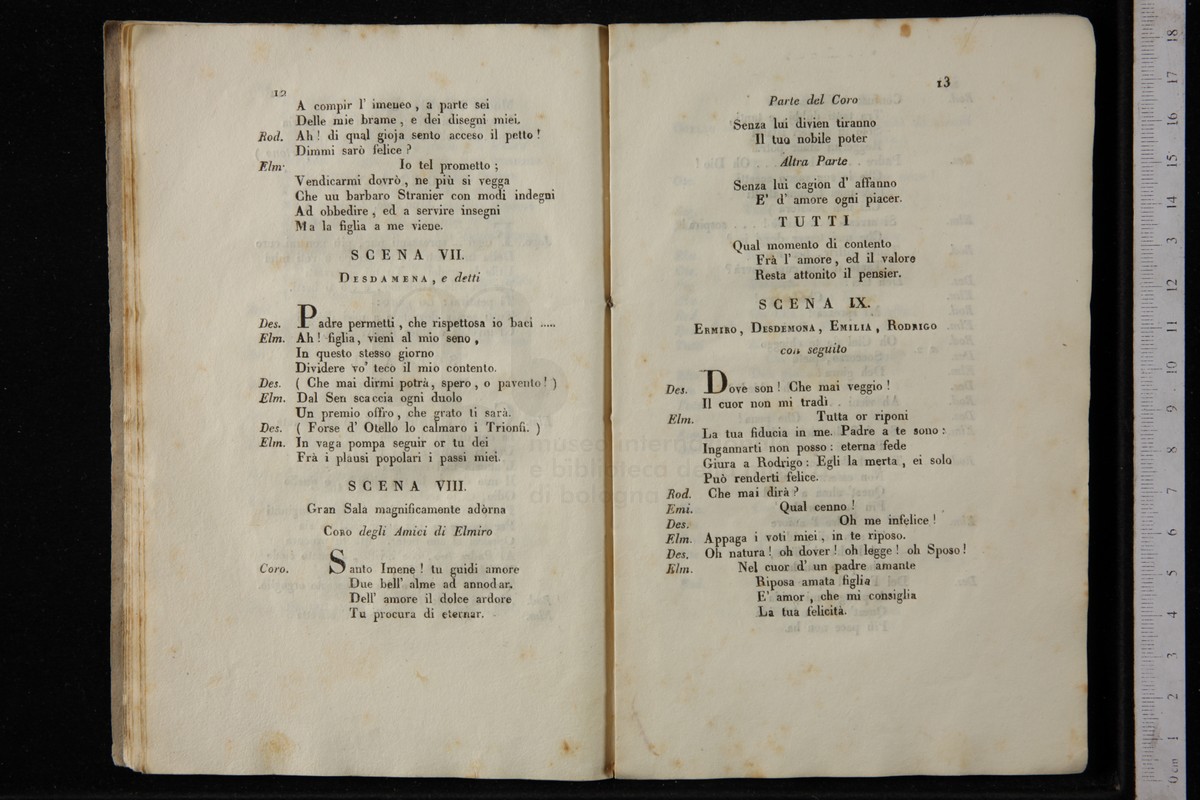 12
A compir l' imeneo , a parte sei
Delle mie brame , e dei disegni miei.
Rod. Ah ! di qual gioja sento acceso il petto !
Dimmi sarò felice ?
Elm. Io tel prometto ;
Vendicarmi dovrò , ne più si vegga
Che un barbaro Stranier con modi indegni
Ad obbedire , ed a servire insegni
Ma la figlia a me viene.
SCENA VII.
DESDAMENA , e detti
Des. Padre permetti , che rispettosa io baci .....
Elm. Ah ! figlia , vieni al mio seno ,
In questo stesso giorno
Dividere vo' teco il mio contento.
Des. ( Che mai dirmi potrà, spero , o pavento ! )
Elm. Dal Sen scaccia ogni duolo
Un premio offro , che grato ti sarà.
Des. ( Forse d' Otello lo calmaro i Trionfi. )
Elm. In vaga pompa seguir or tu dei
Frà i plausi popolari i passi miei.
SCENA VIII.
Gran Sala magnificamente adorna
CORO degli Amici di Elmiro
Coro. Santo Imene ! tu guidi amore
Due bell' alme ad annodar.
Dell' amore il dolce ardore
Tu procura di eternar.
13
Parte del Coro
Senza lui divien tiranno
Il tuo nobile poter
Altra Parte
Senza lui cagion d' affanno
E' d' amore ogni piacer.
TUTTI
Qual momento di contento
Frà l' amore , ed il valore
Resta attonito il pensier.
SCENA IX.
ERMIRO , DESDEMONA , EMILIA , RODRIGO
con seguito
Des. Dove son ! Che mai veggio !
Il cuor non mi tradì .
Elm. Tutta or riponi
La tua fiducia in me. Padre a te sono :
Ingannarti non posso : eterna fede
Giura a Rodrigo : Egli la merta , ei solo
Può renderti felice.
Rod. Che mai dirà ?
Emi. Qual cenno !
Des. Oh me infelice !
Elm. Appaga i voti miei , in te riposo.
Des. Oh natura ! oh dover ! oh legge ! oh Sposo !
Elm. Nel cuor d' un padre amante
Riposa amata figlia
E' amor , che mi consiglia
La tua felicità.
museo interna
e biblioteca de
di bologna
0 cm 1 2 3 4 5 6 7 8 9 10 11 12 13 14 15 16 17 18